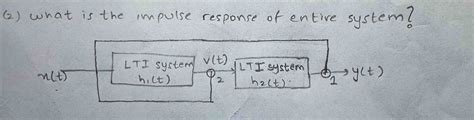 (2) what is the impulse response of entire system?
LTI system
h₁(t)
v(t)
2
LTI system
h₂(t).
1
y(t)
x(t)